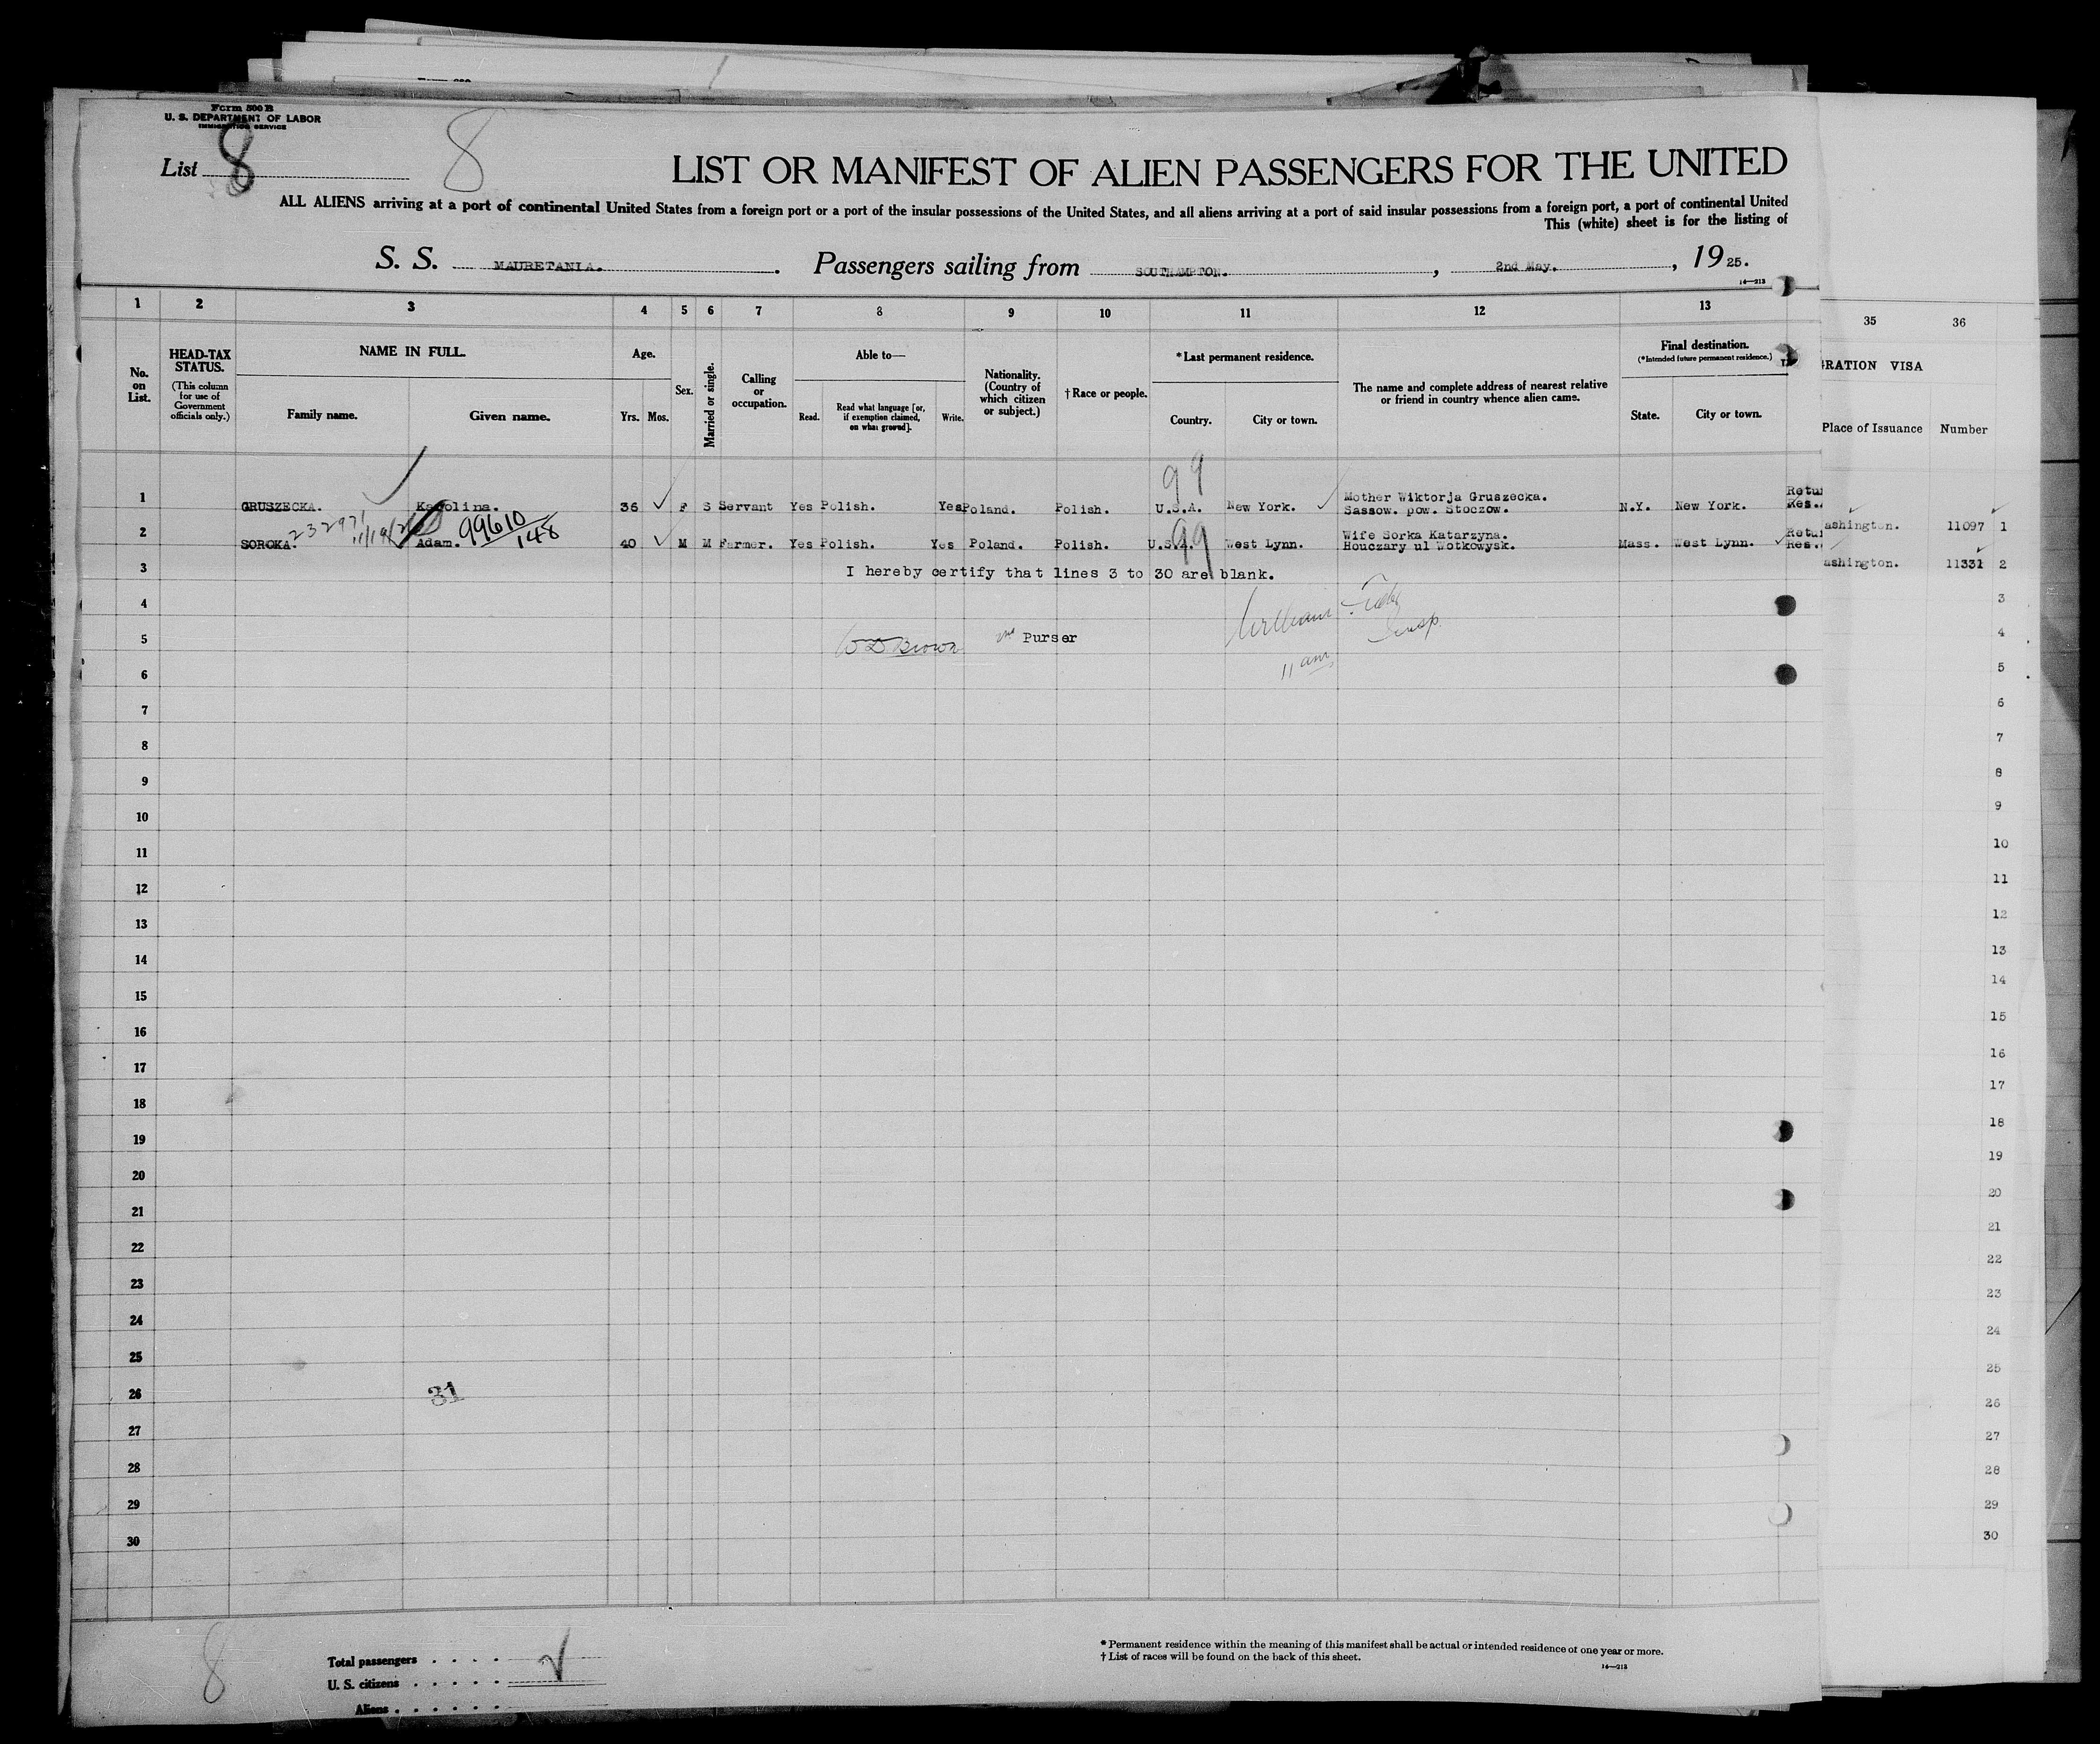 Form 500 B
U. S. DEPARTMENT OF LABOR
IMMIGRATION SERVICE
List 8
8
LIST OR MANIFEST OF ALIEN PASSENGERS FOR THE UNITED
ALL ALIENS arriving at a port of continental United States from a foreign port or a port of the insular possessions of the United States, and all aliens arriving at a port of said insular possessions from a foreign port, a port of continental United
This (white) sheet is for the listing of
S. S. MAURETANIA. Passengers sailing from SOUTHAMPTON. , 2nd May. , 19 25.
16—213
1 2 3 4 5 6 7 8 9 10 11 12 13 35 36
No. on List.
HEAD-TAX STATUS.
(This column for use of Government officials only.)
NAME IN FULL.
Family name. Given name.
Age.
Yrs. Mos.
Sex.
Married or single.
Calling or occupation.
Able to—
Read. Read what language [or, if exemption claimed, on what ground]. Write.
Nationality. (Country of which citizen or subject.)
† Race or people.
* Last permanent residence.
Country. City or town.
The name and complete address of nearest relative or friend in country whence alien came.
Final destination.
(*Intended future permanent residence.)
State. City or town.
RATION VISA
Place of Issuance Number
99
1 GRUSZECKA. Karolina. 36 F S Servant Yes Polish. Yes Poland. Polish. U.S.A. New York. Mother Wiktorja Gruszecka. Sassow. pow. Stoczow. N.Y. New York. Retu Res. ashington. 11097 1
99610/148
99
2 SOROKA. Adam. 40 M M Farmer. Yes Polish. Yes Poland. Polish. U.S.A. West Lynn. Wife Sorka Katarzyna. Houczary ul Wotkowysk. Mass. West Lynn. Retu Res. ashington. 11331 2
3 I hereby certify that lines 3 to 30 are blank. 3
4 William Insp. 4
5 W D Brown 2nd Purser 5
11 am
6 6
7 7
8 8
9 9
10 10
11 11
12 12
13 13
14 14
15 15
16 16
17 17
18 18
19 19
20 20
21 21
22 22
23 23
24 24
25 25
26 26
31
27 27
28 28
29 29
30 30
8
Total passengers . . . . 2
U. S. citizens . . . . .
Aliens . . . . . .
* Permanent residence within the meaning of this manifest shall be actual or intended residence of one year or more.
† List of races will be found on the back of this sheet.
16—213